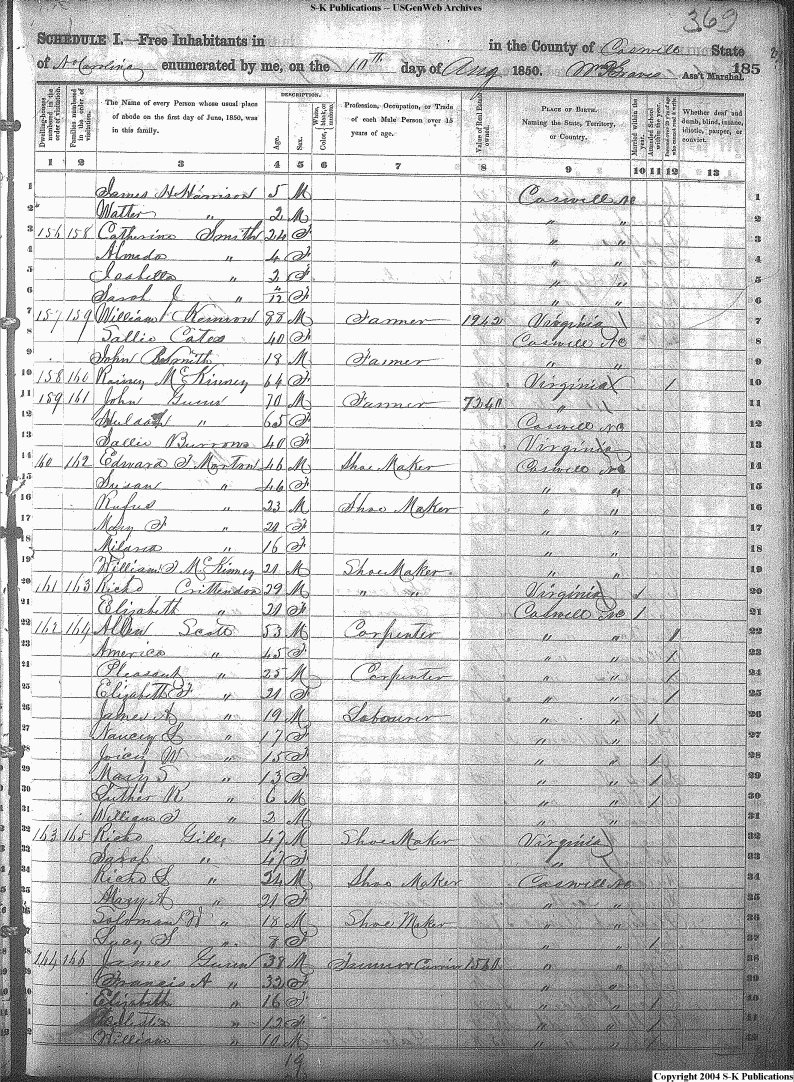 S-K Publications -- USGenWeb Archives
369
SCHEDULE I.—Free Inhabitants in in the County of Caswell State
of N Carolina enumerated by me, on the 10th day of Aug 1850. Wm Graves Ass't Marshal. 185
Dwelling-houses numbered in the order of visitation.
Families numbered in the order of visitation.
The Name of every Person whose usual place of abode on the first day of June, 1850, was in this family.
DESCRIPTION.
Age.
Sex.
Color, White, black, or mulatto.
Profession, Occupation, or Trade of each Male Person over 15 years of age.
Value of Real Estate owned.
PLACE OF BIRTH.
Naming the State, Territory, or Country.
Married within the year.
Attended School within the year.
Persons over 20 y'rs of age who cannot read & write.
Whether deaf and dumb, blind, insane, idiotic, pauper, or convict.
1 2 3 4 5 6 7 8 9 10 11 12 13
1 James H Harrison 5 M Caswell NC 1
2 Walter " 2 M " " 2
3 156 158 Catherine Smith 24 F " " 3
4 Almeda " 4 F " " 4
5 Isabella " 2 F " " 5
6 Sarah J " 4/12 F " " 6
7 157 159 William 88 M Farmer 1942 Virginia / 7
8 Sallie Cates 40 F Caswell NC 8
9 John B Smith 18 M Farmer " " 9
10 158 160 Rainey McKinney 64 F Virginia 1 10
11 159 161 John Gunn 70 M Farmer 7240 " 11
12 Huldah " 65 F Caswell NC 12
13 Sallie Burrows 40 F Virginia 13
14 160 162 Edward T Morton 46 M Shoe Maker Caswell NC 14
15 Susan " 46 F " " 15
16 Rufus " 23 M Shoe Maker " " 16
17 Mary F " 21 F " " 17
18 " 16 F " " 18
19 William F McKinney 21 M Shoe Maker " " 19
20 161 163 Richd Crittendon 29 M " " Virginia 1 20
21 Elizabeth " 21 F Caswell NC 1 21
22 162 164 Allen Scott 53 M Carpenter " " 1 22
23 America " 45 F " " 1 23
24 Pleasant " 25 M Carpenter " " 1 24
25 Elizabeth F " 21 F " " 1 25
26 James A " 19 M Labourer " " 1 26
27 Nancy S " 17 F " "
28 Joicy W " 15 F " " 1 28
29 Mary S " 13 F " " 1 29
30 Luther R " 6 M " " 1 30
31 William T " 2 M " " 31
32 163 165 Richd Giles 47 M Shoe Maker Virginia 32
33 Sarah " 47 F " 33
34 Richd S " 24 M Shoe Maker Caswell NC 34
35 Mary A " 21 F " "
36 Soloman W " 18 M Shoe Maker " " 36
37 Lucy S " 8 F " " 1
38 164 166 James Gunn 38 M 1560 " " 38
39 Francis A " 32 F " "
40 Elizabeth " 16 F " " 1 40
41 " 12 F " " 1 41
42 William " 10 M " " 1 42
19
Copyright 2004 S-K Publications